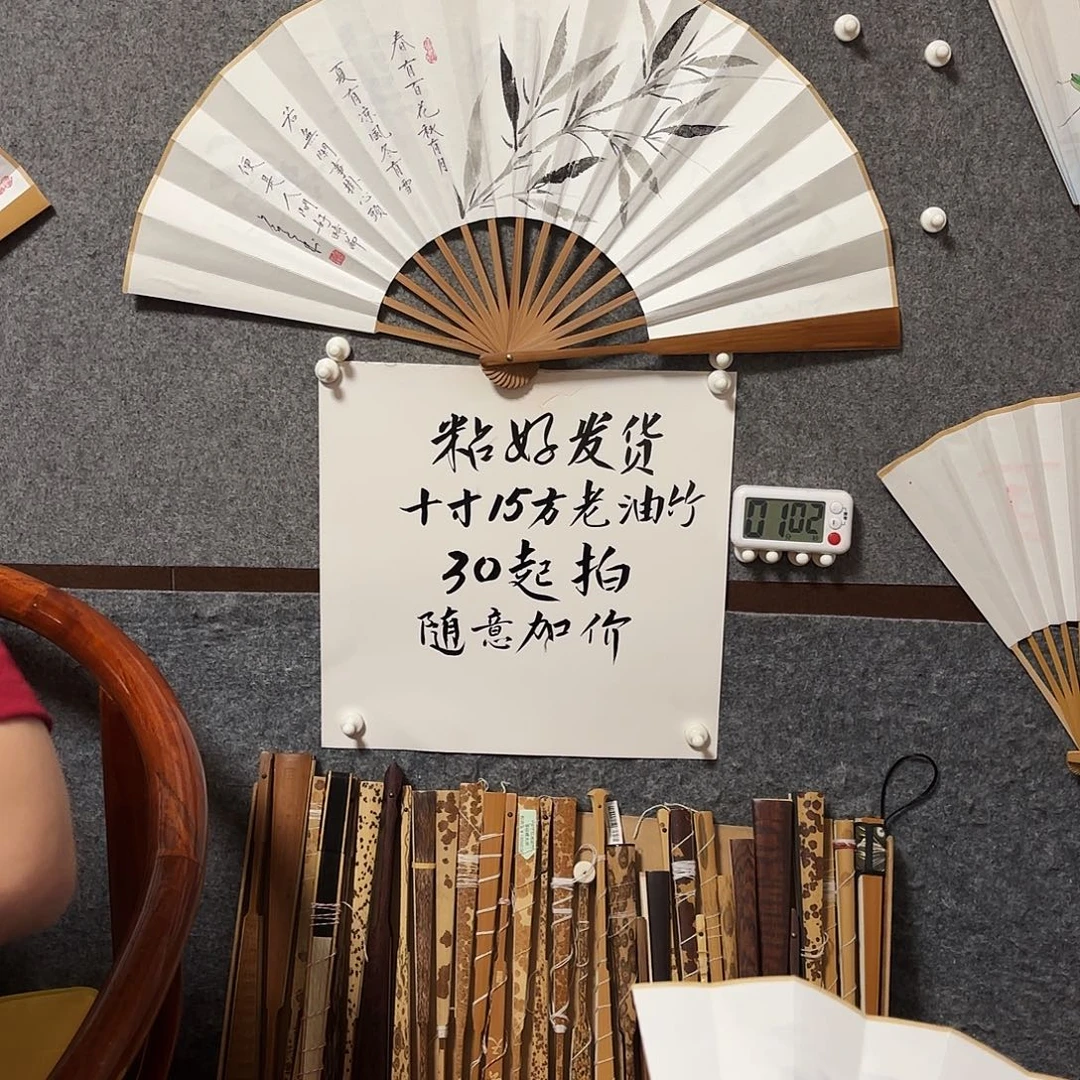 春有百花秋有月
夏有凉风冬有雪
若無閒事掛心頭
便是人间好時節
粘好发货
十寸15方老油竹
30起拍
随意加价
0102